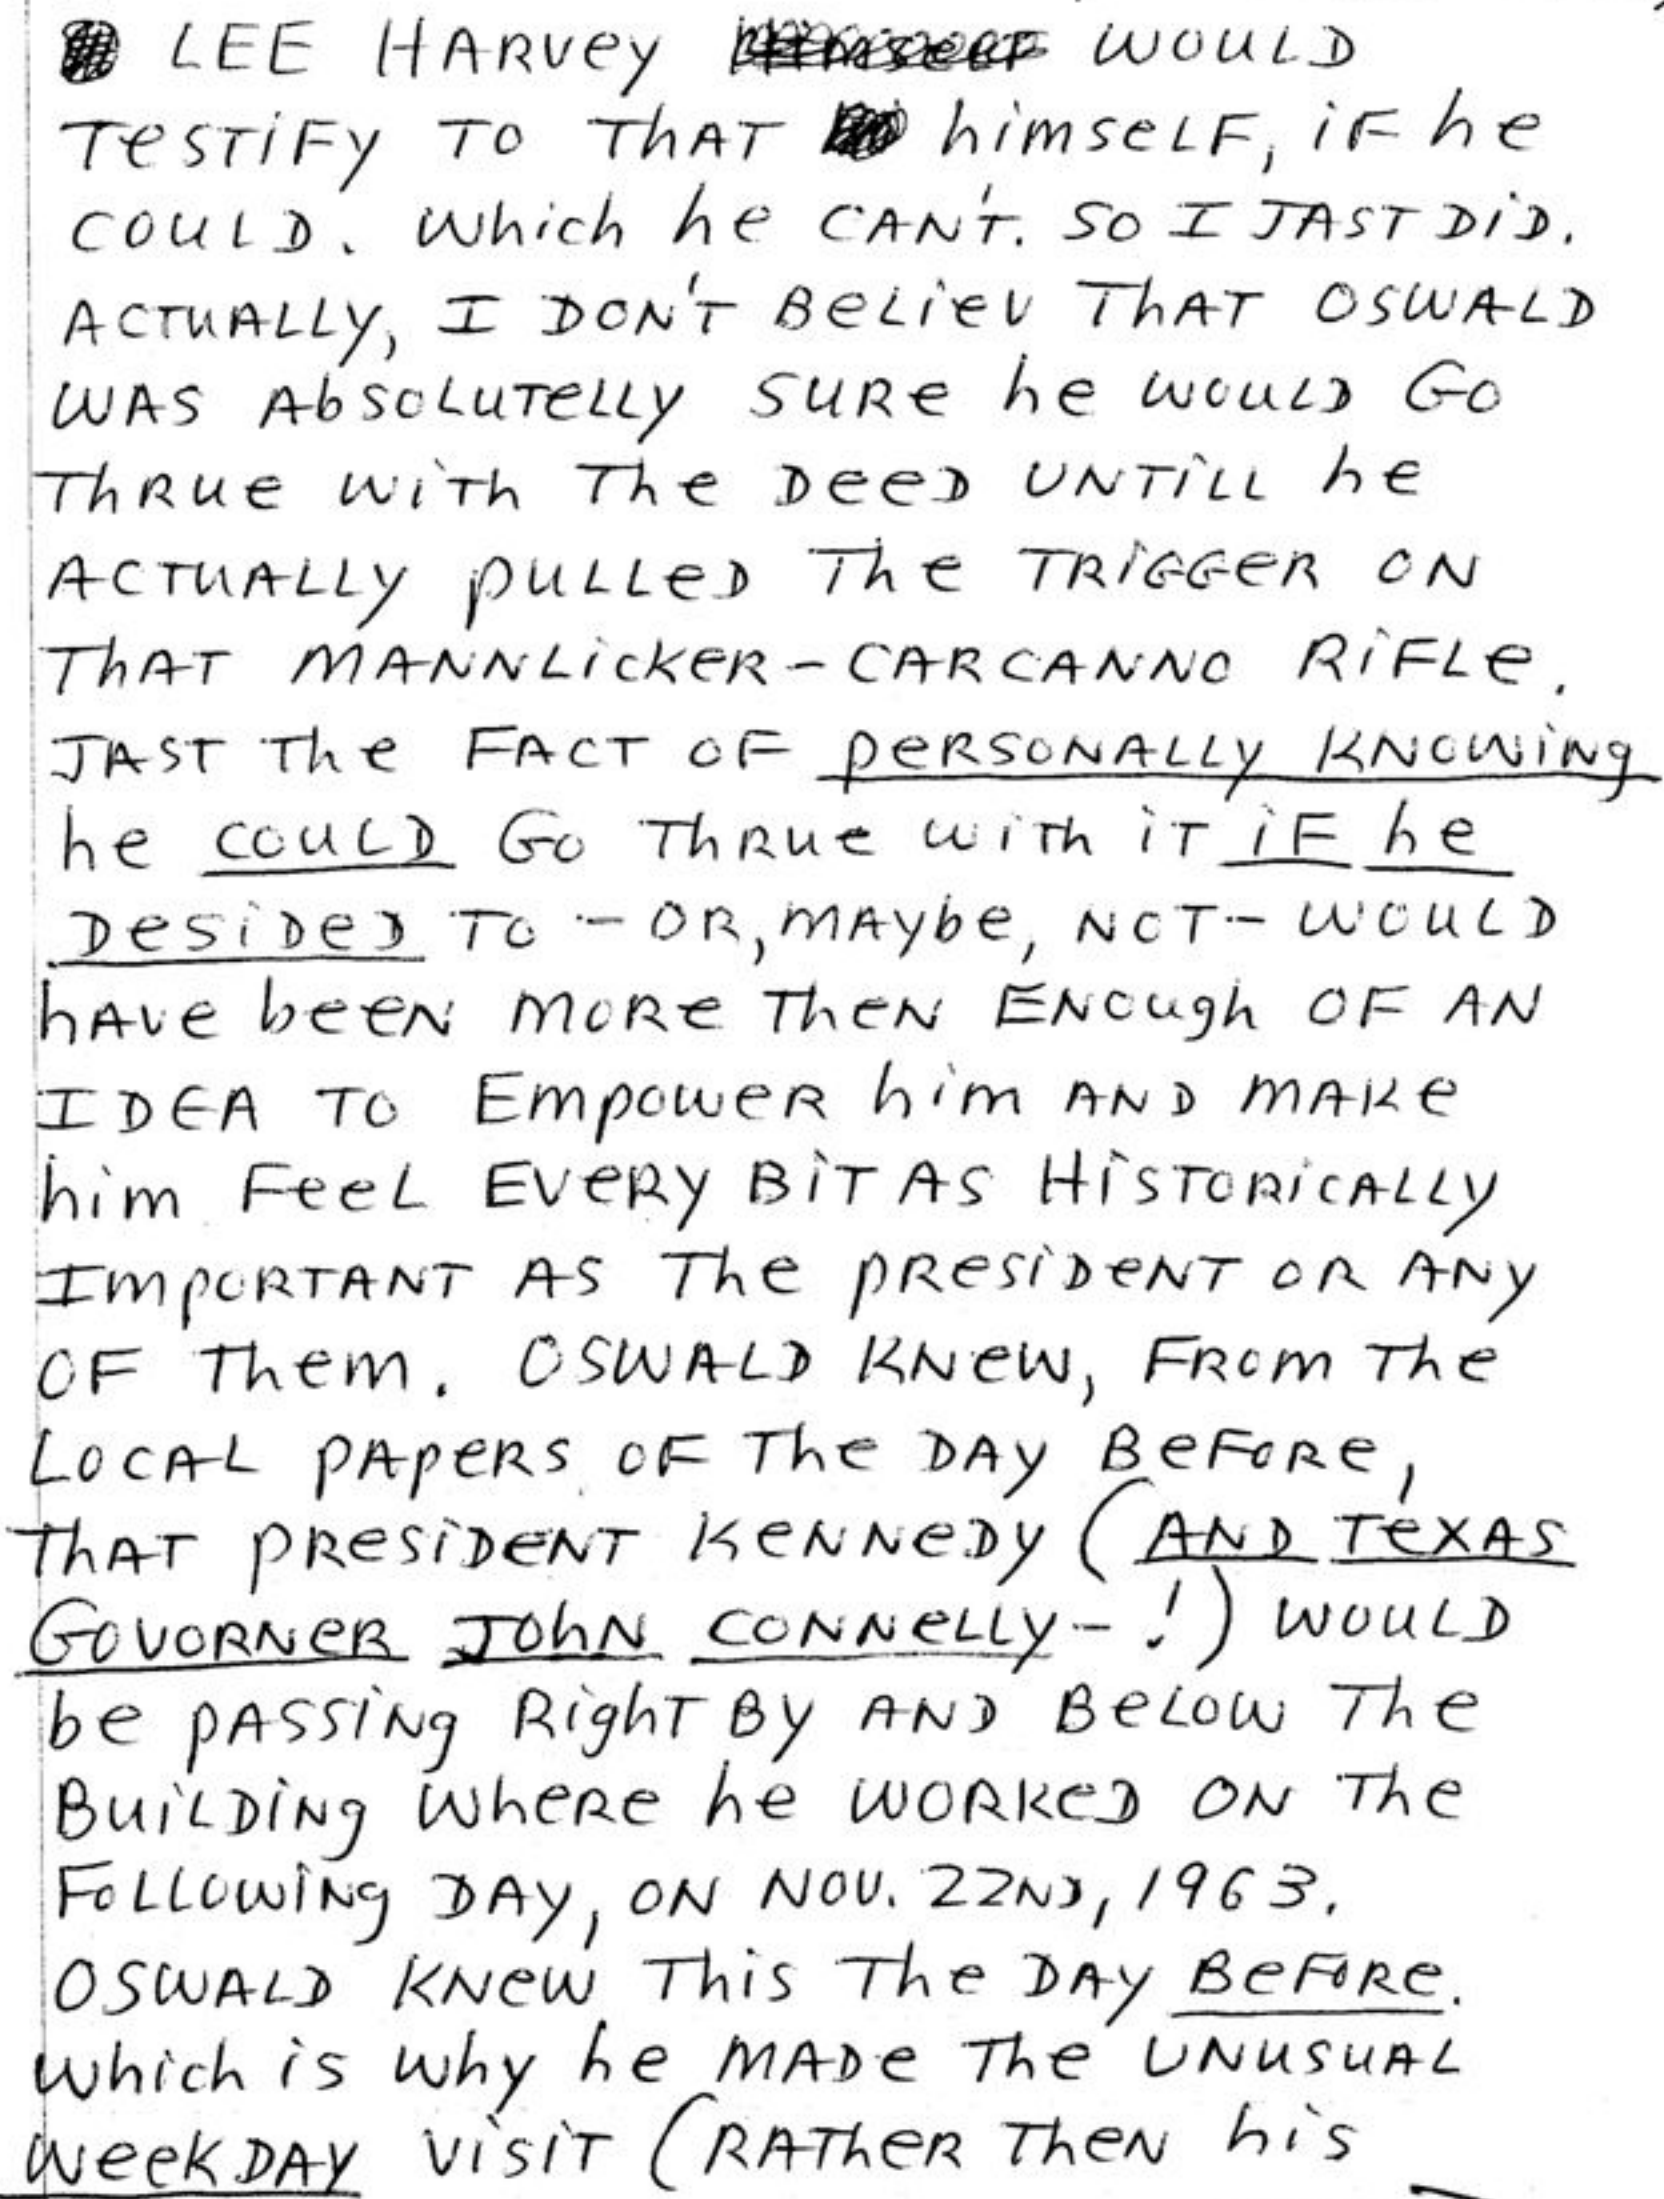 LEE HARVey WOULD
TesTiFy TO ThAT himseLF, iF he
COULD. Which he CAN'T. SO I JAST DiD.
ACTUALLY, I DON'T BeLieV ThAT OSWALD
WAS AbSOLUTeLLy SURe he WOULD GO
ThRUe WiTh The DeeD UNTiLL he
ACTUALLy pULLeD The TRiGGeR ON
ThAT MANNLicKeR-CARCANNO RiFLe.
JAST The FACT OF peRSONALLy KNOWiNg
he COULD GO ThRUe WiTh iT iF he
DesiDeD TO - OR, MAybe, NOT - WOULD
hAve beeN MORe TheN ENOugh OF AN
IDEA TO EmpOWeR him AND MAKe
him FeeL EVeRy BiT AS HiSTORiCALLy
ImpORTANT AS The pResiDeNT OR ANy
OF Them. OSWALD KNeW, FROM The
LOCAL pApeRS OF The DAy BeFORe,
ThAT pResiDeNT KeNNeDy (AND TeXAS
GOVORNeR JOhN CONNeLLy-!) WOULD
be pASSiNg RighT By AND BeLOW The
BuiLDiNg WheRe he WORKeD ON The
FOLLOWiNg DAy, ON NOV. 22ND, 1963.
OSWALD KNeW This The DAy BeFORe.
Which is Why he MADe The UNUSUAL
WeekDAy VisiT (RATheR TheN his